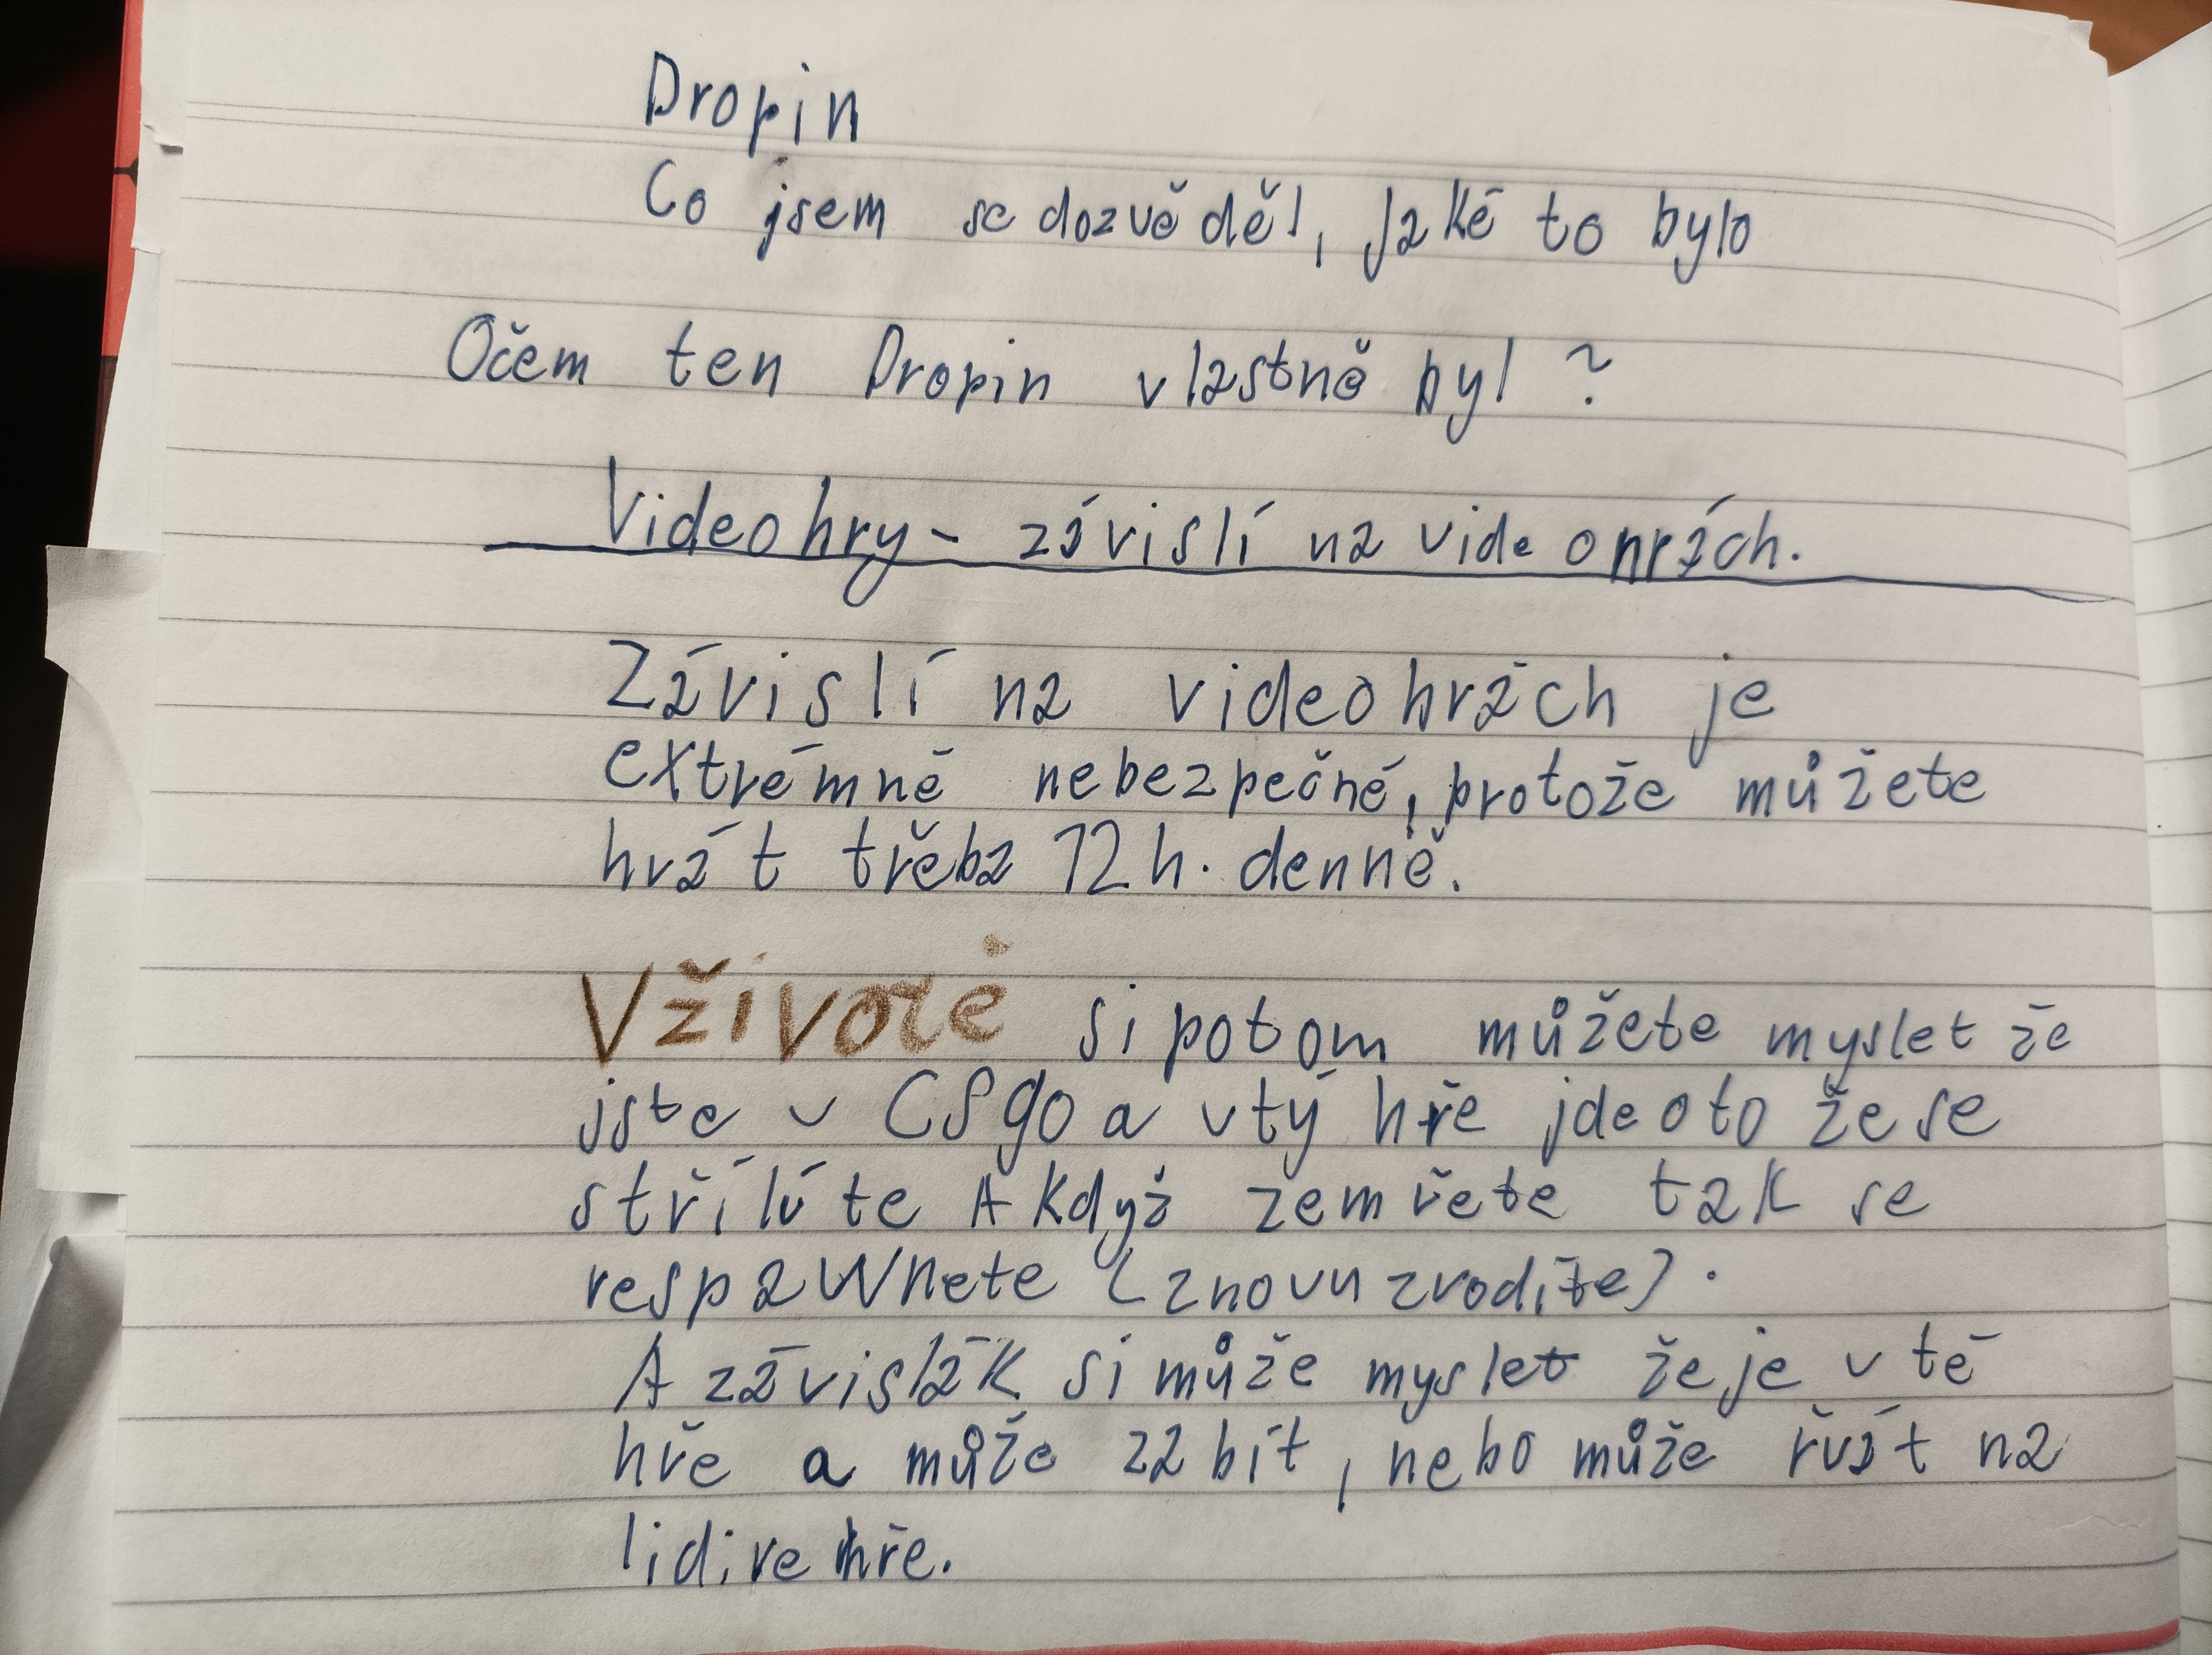 Dropin
Co jsem se dozvěděl, jaké to bylo
Očem ten Dropin vlastně byl ?
Videohry - závislí na videohrách.
Závislí na videohrách je
extrémně nebezpečné, protože můžete
hrát třeba 12 h. denně.
Vživotě si potom můžete myslet že
jste v CSgo a vtý hře jde oto že se
střílíte A když zemřete tak se
respawnete (znovu zrodíte).
A závislák si může myslet že je v té
hře a může zabít, nebo může řvát na
lidi ve hře.